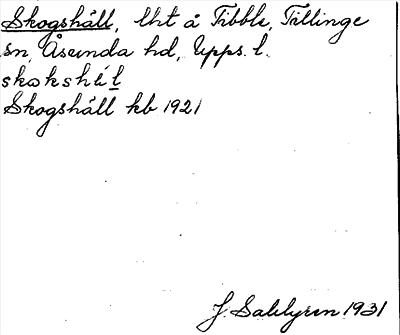 Skogshäll, lht å Tibble, Tillinge
sn, Åsunda hd, Upps. l.
skokshäl
Skogshäll kb 1921
J. Sahlgren 1931